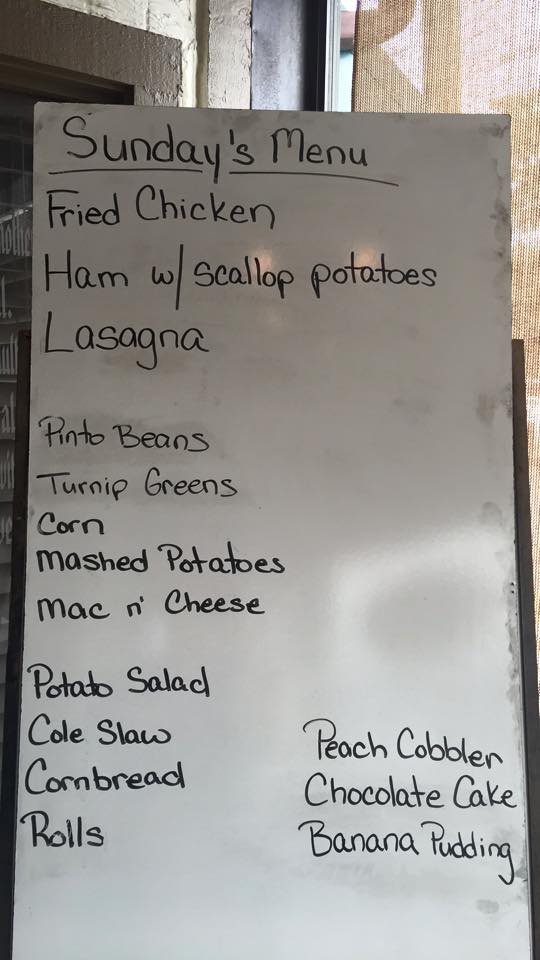 Sunday's Menu
Fried Chicken
Ham w/ scallop potatoes
Lasagna
Pinto Beans
Turnip Greens
Corn
Mashed Potatoes
Mac n' Cheese
Potato Salad
Cole Slaw
Cornbread
Rolls
Peach Cobbler
Chocolate Cake
Banana Pudding